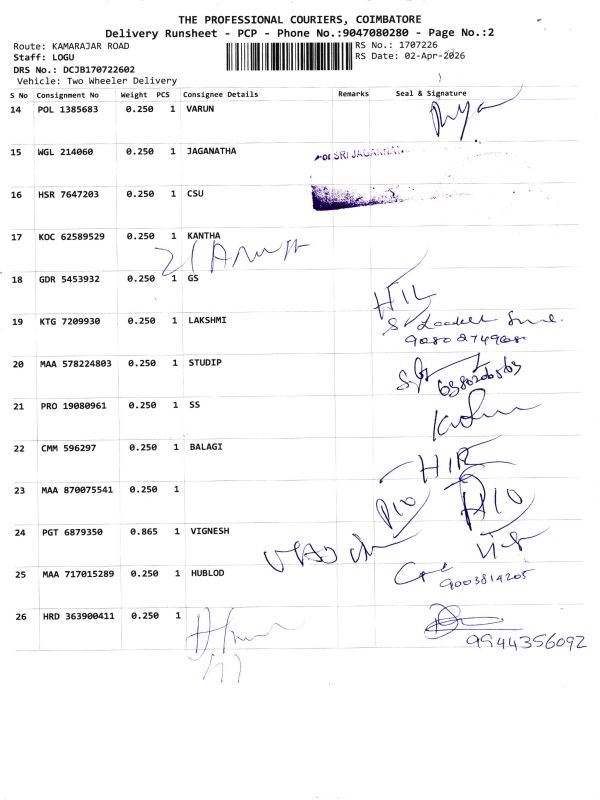 THE PROFESSIONAL COURIERS, COIMBATORE
Delivery Runsheet - PCP - Phone No.:9047080280 - Page No.:2
Route: KAMARAJAR ROAD RS No.: 1707226
Staff: LOGU RS Date: 02-Apr-2026
DRS No.: DCJB170722602
Vehicle: Two Wheeler Delivery
S No Consignment No Weight PCS Consignee Details Remarks Seal & Signature
14 POL 1385683 0.250 1 VARUN
15 WGL 214060 0.250 1 JAGANATHA
For SRI JAGANNA
16 HSR 7647203 0.250 1 CSU
17 KOC 62589529 0.250 1 KANTHA
18 GDR 5453932 0.250 1 GS
HIL
19 KTG 7209930 0.250 1 LAKSHMI
9080274968
20 MAA 578224803 0.250 1 STUDIP
6380206563
21 PRO 19080961 0.250 1 SS
22 CMM 596297 0.250 1 BALAGI
23 MAA 870075541 0.250 1
24 PGT 6879350 0.865 1 VIGNESH
25 MAA 717015289 0.250 1 HUBLOD
9003814205
26 HRD 363900411 0.250 1
9944356092